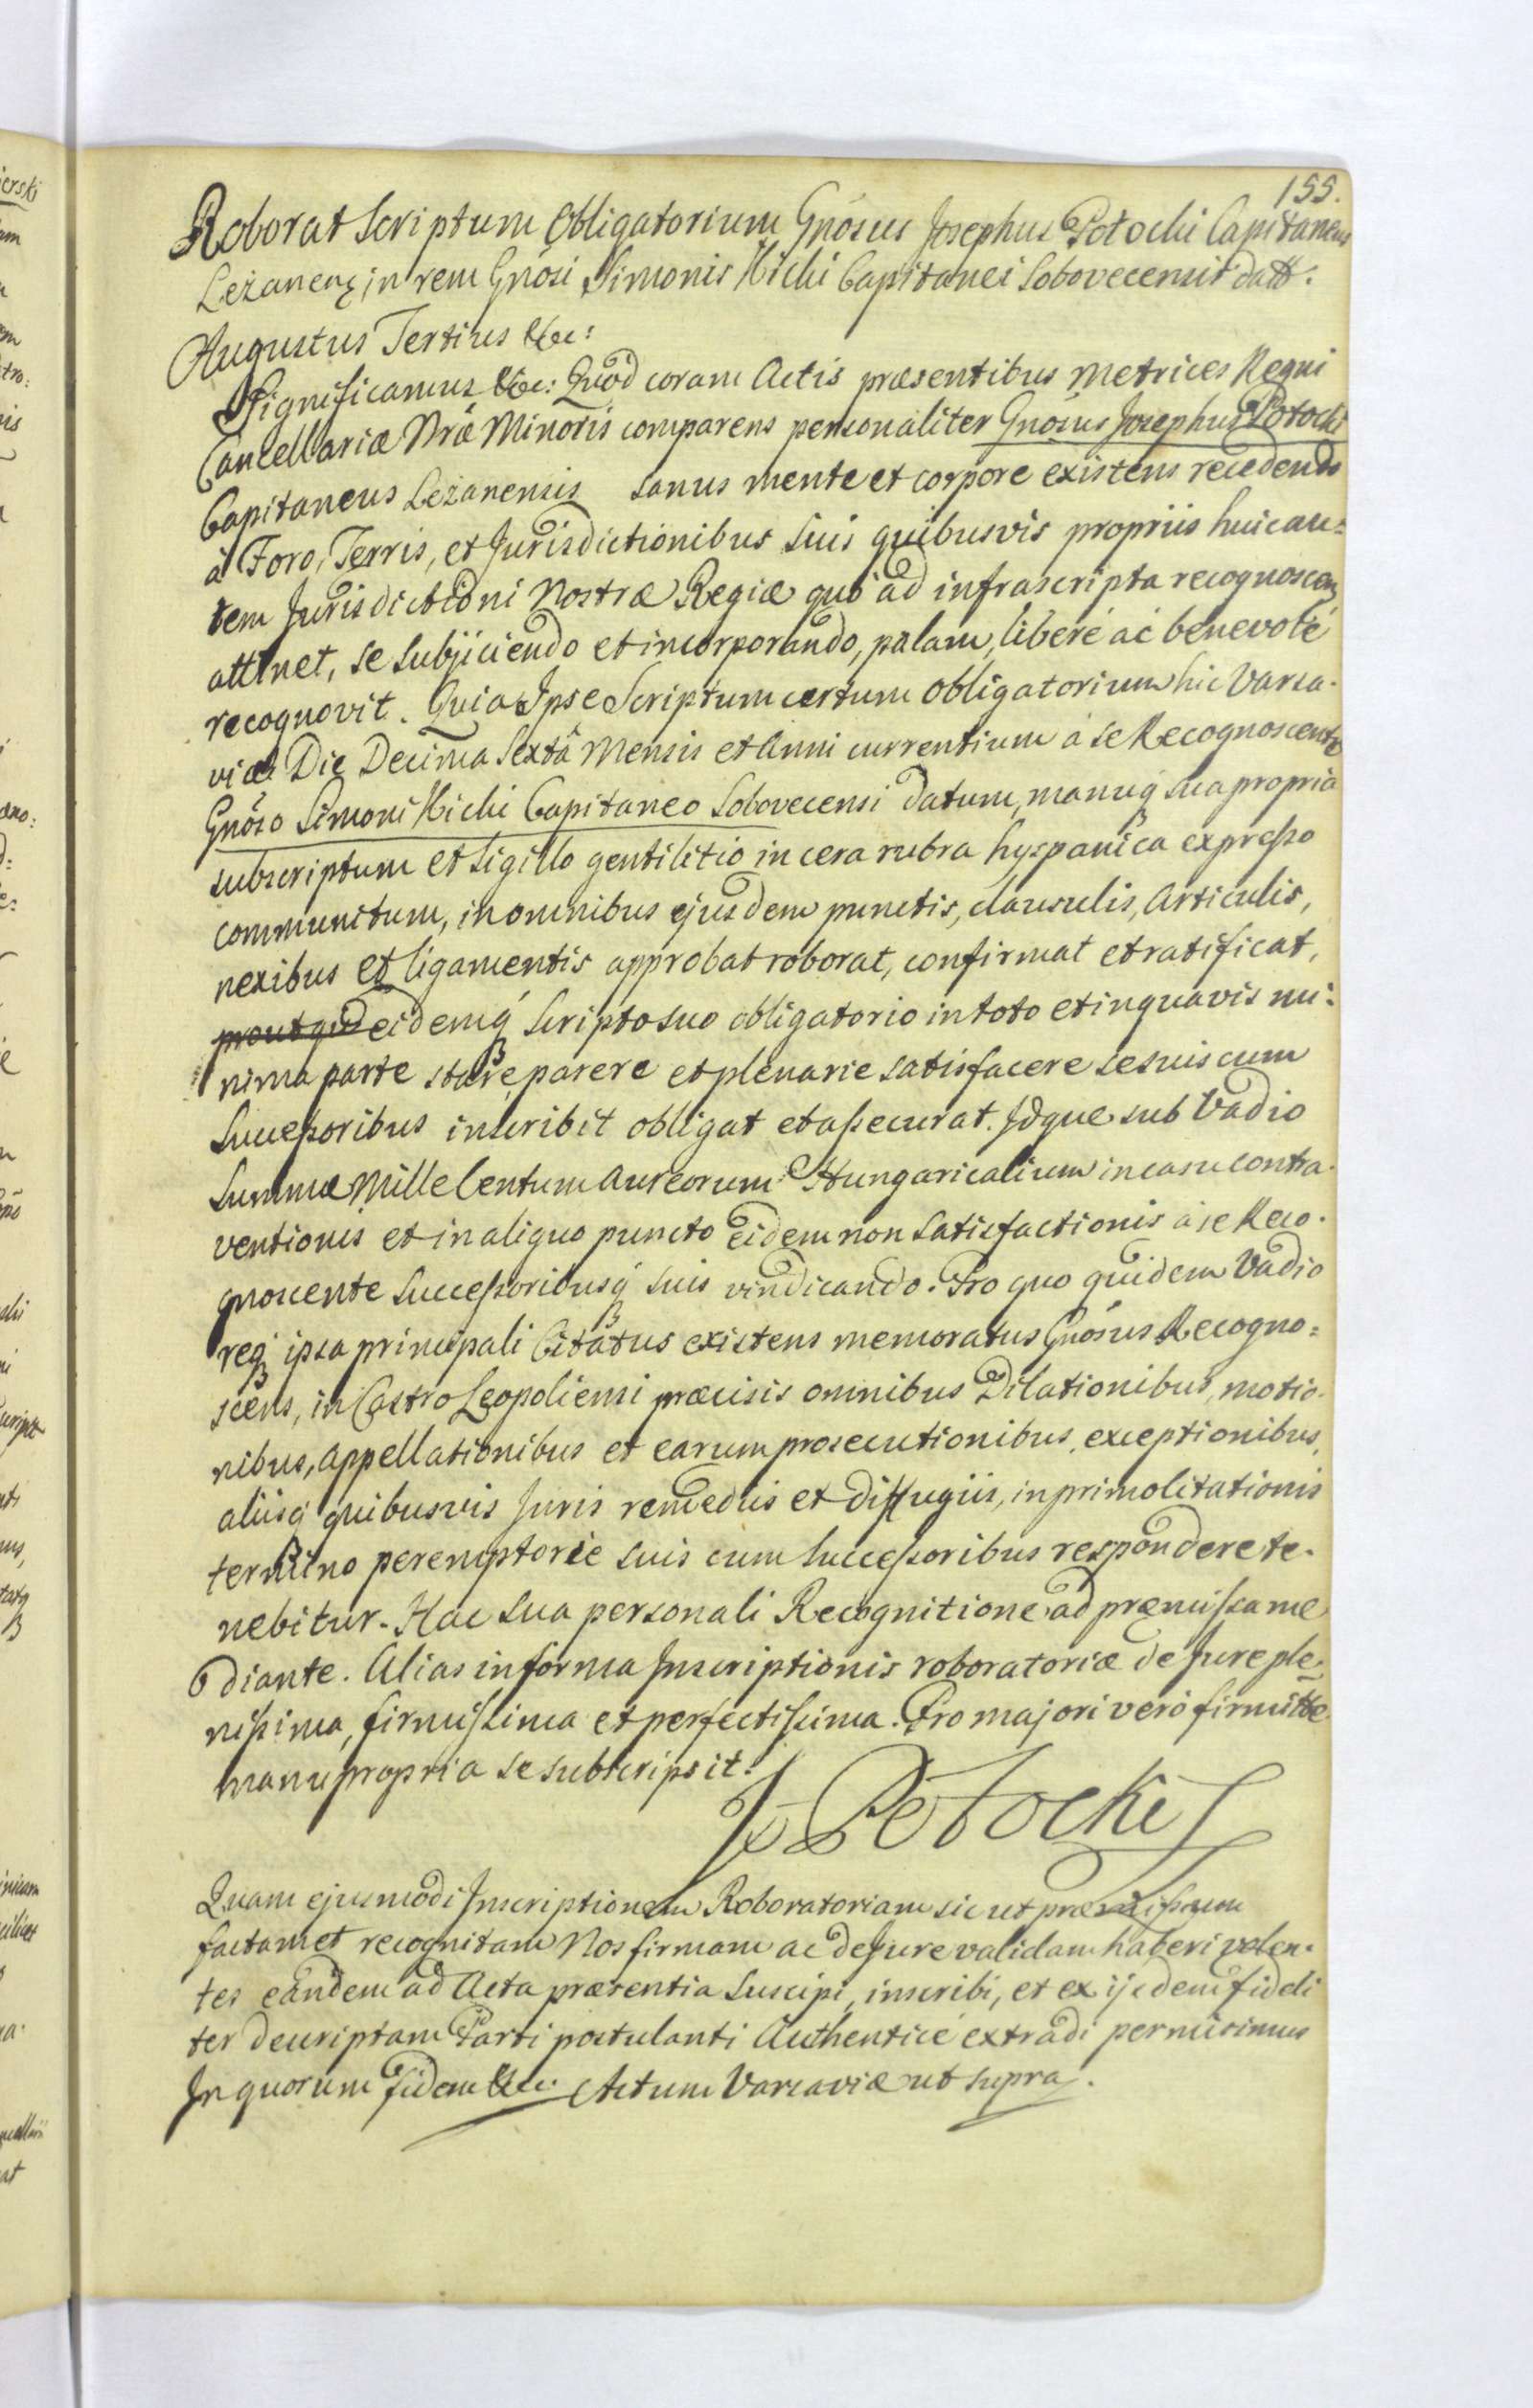 155.
Roborat Scriptum Obligatorium Gnõsus Josephus Potocki Capitaneus
Leżanenς in rem Gnõsi Simonis Kicki Capitanei Sobovecensis datt:
Augustus Tertius &c:
Significamus &c: Quod coram Actis præsentibus Metrices Regni
Cancellariæ Nræ Minoris comparens personaliter Gnõsus Josephus Potocki
Capitaneus Leżanensis sanus mente et corpore existens recedendo
à Foro, Terris, et Jurisdictionibus suis quibusvis propriis huicau=
tem Jurisdictioni Nostræ Regiæ quo ad infrascripta recognoscen
attinet, se subjiciendo et incorporando, palam, liberé ac benevolé
recognovit. Quia Ipse Scriptum certum obligatorium hic Varsa-
viæ Die Decima Sextâ Mensis et Anni currentium à se Recognoscente
Gnõso Simoni Kicki Capitaneo Sobovecensi datum, manuq sua propria
subscriptum et Sigillo gentilitio in cera rubra hyspanica expresso
communitum, in omnibus ejusdem punctis, clausulis, Articulis,
nexibus et ligamentis approbat roborat, confirmat et ratificat,
eidemq Scripto suo obligatorio in toto et in quavis mi:
nima parte stare, parere et plenarie satisfacere se suis cum
Successoribus inscribit obligat et assecurat. Idque sub Vadio
Summæ Mille Centum Aureorum Hungaricalium in casu contra-
ventionis et in aliquo puncto eidem non satisfactionis à se Reco-
gnoscente Successoribusq suis vindicando. Pro quo quidem Vadio
req ipsa principali Citatus existens memoratus Gnõsus Recogno=
scens, in Castro Leopoliensi præcisis omnibus Dilationibus, motio-
nibus, appellationibus et earum prosecutionibus, exceptionibus,
aliisq quibusvis Juris remediis et diffugiis, in primo Citationis
termino peremptorie suis cum Successoribus respondere te-
nebitur. Hac sua personali Recognitione ad præmissa me
diante. Alias in forma Inscriptionis roboratoriæ de Jure ple-
nissima, firmissima et perfectissima. Pro majori veró firmitte
manu propria se subscripsit.
J Potocki
Quam ejusmodi Inscriptionem Roboratoriam sic ut præmissum
factam et recognitam Nos firmam ac de Jure validam haberi volen-
tes eandem ad Acta præsentia Suscipi, inscribi, et ex ijsdem fideli
ter descriptam Parti postulanti Authenticé extradi permisimus
In quorum fidem &c. Actum Varsaviæ ut supra.